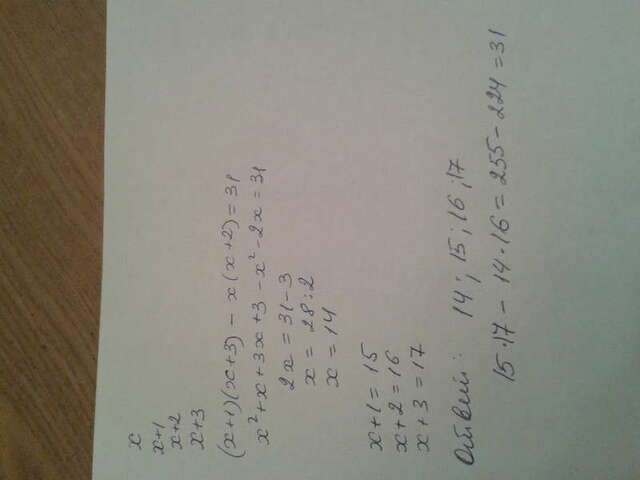 x
x+1
x+2
x+3
(x+1)(x+3) - x(x+2) = 31
x²+x+3x+3-x²-2x=31
2x=31-3
x=28:2
x=14
x+1=15
x+2=16
x+3=17
Ответ: 14; 15; 16; 17
15·17 - 14·16 = 255 - 224 = 31